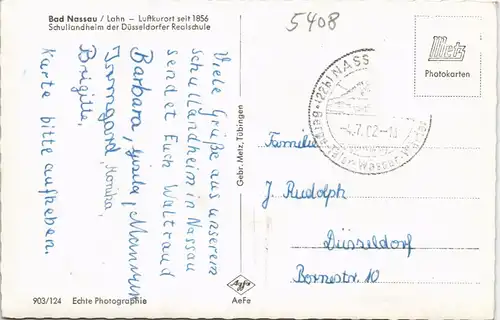 Bad Nassau / Lahn – Luftkurort seit 1856
Schullandheim der Düsseldorfer Realschule
5408
Viele Grüße aus unserem
Schullandheim in Nassau
sendet Euch Waltraud
Barbara, Gisela,
Irmgard, Monika,
Brigitte,
Karte bitte aufheben.
903/124 Echte Photographie
Gebr. Metz, Tübingen
Agfa
AeFe
(22b) NASS
Metz
Photokarten
Familie
J. Rudolph
Düsseldorf
Bornestr. 10